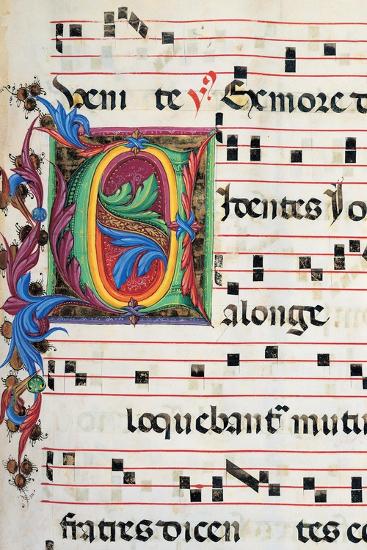 veni te ℣ Ex more d
Identes Jo
alonge
loquebant᷑ muti
fratres dicen tes ec